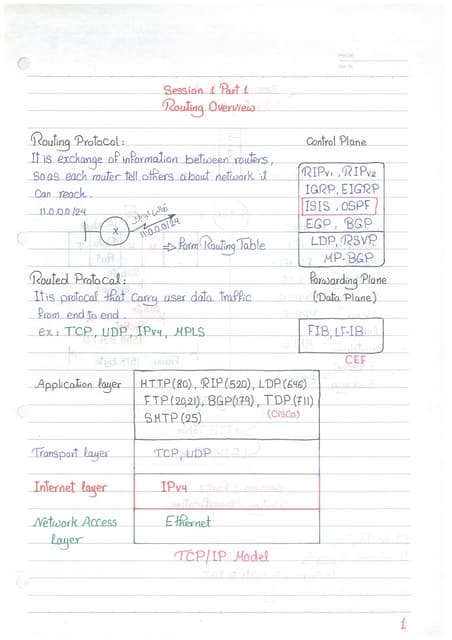 Session 1 Part 1
Routing Overview
Routing Protocal:
It is exchange of information between routers,
So as each router tell others about network it
Can reach.
11.0.0.0/24
X
11.0.0.0/24
⇒ Form Routing Table
Control Plane
RIPv1, RIPv2
IGRP, EIGRP
ISIS, OSPF
EGP, BGP
LDP, RSVP
MP-BGP
Routed Protocal:
It is protocal that carry user data traffic
From end to end.
ex: TCP, UDP, IPv4, MPLS
Forwarding Plane
(Data Plane)
FIB, LFIB
CEF
Application layer
HTTP(80), RIP(520), LDP(646)
FTP(20,21), BGP(179), TDP(711)
SMTP(25)
(Cisco)
Transport layer
TCP, UDP
Internet layer
IPv4
Network Access
layer
Ethernet
TCP/IP Model
1